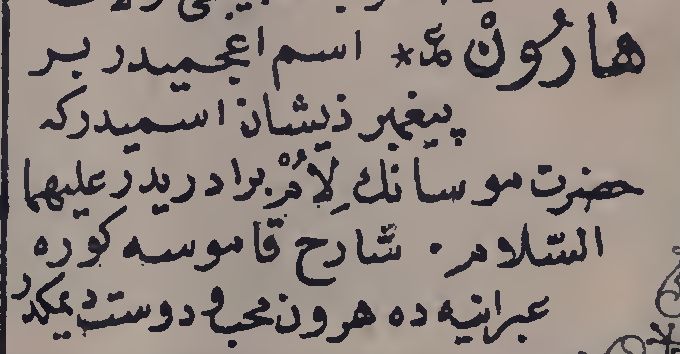 هَارُونْ ع * اسم اعجميدر بر
پيغمبر ذيشان اسميدركه
حضرت موسانك لِاُمْ برادريدر عليهما
السّلام. شارح قاموسه كوره
عبرانيه ده هرون محب و دوست ديمكدر